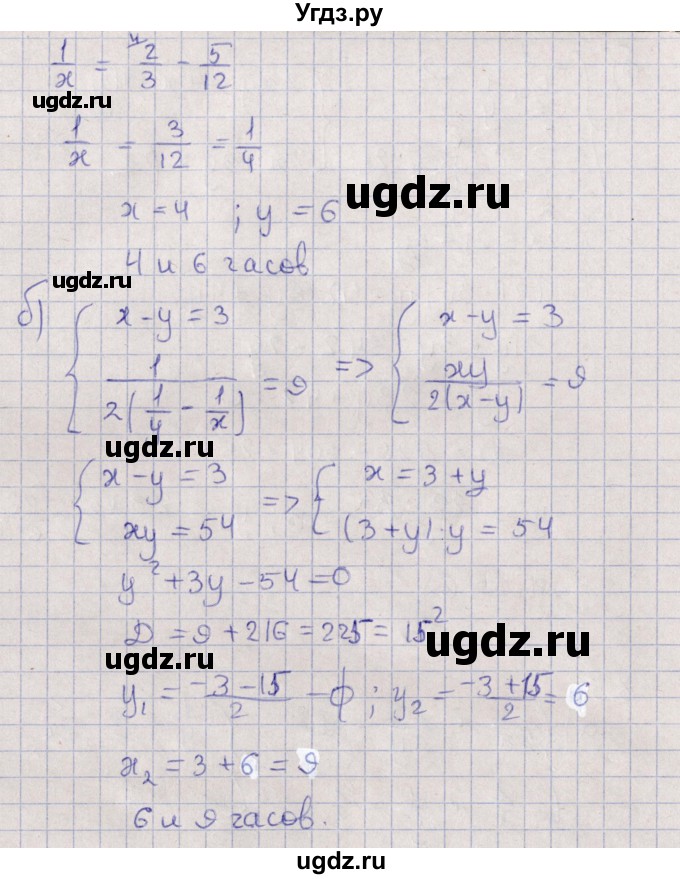 Угдз.ру
1/x = 2/3 - 5/12
ugdz.ru
1/x = 3/12 = 1/4
ugdz.ru
x = 4 ; y = 6
4 и 6 часов
ugdz.ru
б) { x - y = 3 ; 1/(2(1/y - 1/x)) = 9 => { x - y = 3 ; xy/(2(x-y)) = 9
{ x - y = 3 ; xy = 54 => { x = 3 + y ; (3+y)·y = 54
y² + 3y - 54 = 0
Д = 9 + 216 = 225 = 15²
ugdz.ru
y₁ = (-3-15)/2 - ф ; y₂ = (-3+15)/2 = 6
x₂ = 3 + 6 = 9
ugdz.ru
6 и 9 часов.
ugdz.ru